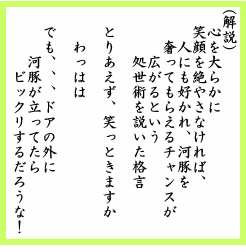 (解説)
心を大らかに
笑顔を絶やさなければ、
人にも好かれ、河豚を
奢ってもらえるチャンスが
広がるという
処世術を説いた格言
とりあえず、笑っときますか
わっはは
でも、、、ドアの外に
河豚が立ってたら
ビックリするだろうな!